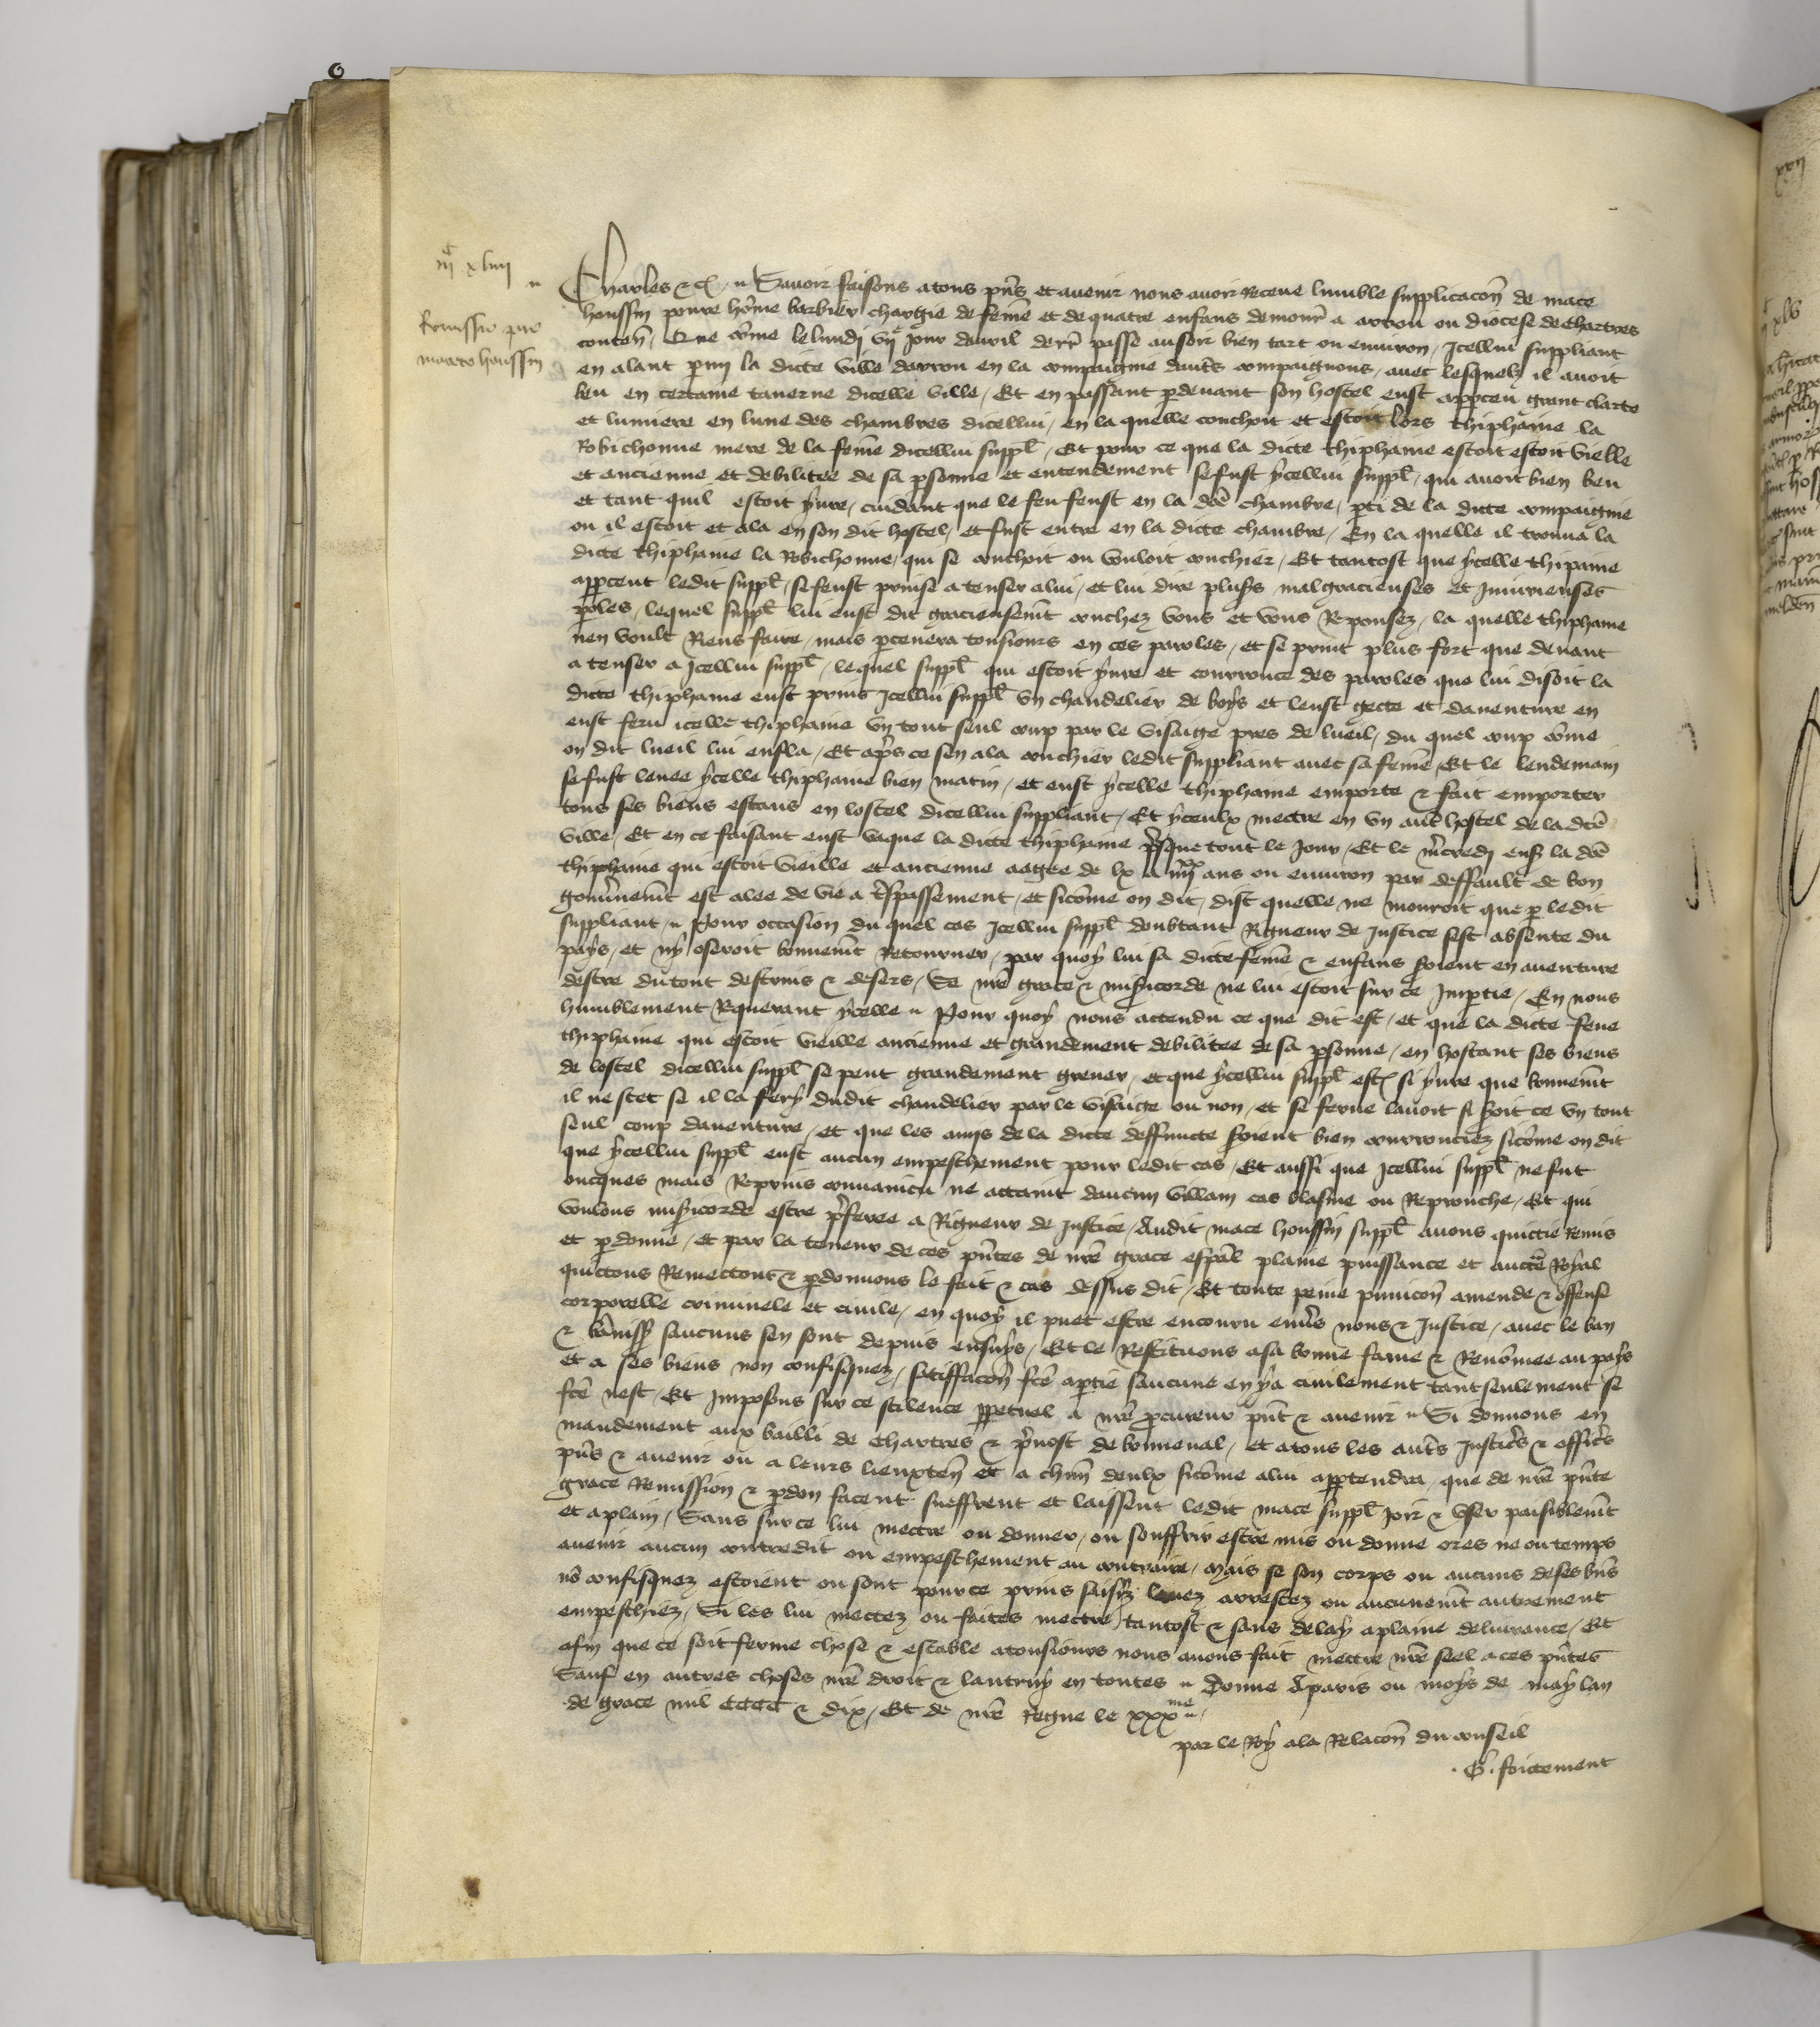 iiic xliiii
Remissio pro
maceo houssin
Charles &c. Savoir faisons a tous pñs et avenir nous avoir receue lumble supplicacoñ de mace
houssin povre hõme barbier chargie de fẽme et de quatre enfans demour̃ a arrou ou diocese de Chartres
conteñ / Que cõme le lundi vije jour davril derr̃ passe au soir bien tart ou environ / Icellui suppliant
en alant parmi la dicte ville darrou en la compaignie daut̃s compaignons / avec lesquelz il avoit
beu en certaine taverne dicelle ville / Et en passant pdevant son hostel eust appceu grant clarte
et lumiere en lune des chambres dicellui / en la quelle couchoit et estoit lors thiphaine la
Robichonne mere de la fẽme dicellui suppl̃ / Et pour ce que la dicte thiphaine estoit estoit vielle
et ancienne et debilitee de sa psonne et entendement se fust ycellui suppl̃ / qui avoit bien beu
et tant quil estoit yvre / cuidant que le feu feust en la dc̃e chambre / pti de la dicte compaignie
ou il estoit et ala en son dit hostel / et fust entre en la dicte chambre / En la quelle il trouva la
dicte thiphaine la Robichonne / qui se couchoit ou vouloit couchier / Et tantost que ycelle thipaine
appceut ledit suppl̃ / se feust prinse a tenser a lui / et lui dire plus̃s malgracieuses et Iniurieuses
poles / lequel suppl̃ lui eust dit gracieusem̃t couchez vous et vous reposez / la quelle thiphaine
nen voult riens faire / mais pcevera tousiours en ces paroles / et se print plus fort que devant
a tenser a Icellui suppl̃ / lequel suppl̃ qui estoit yvre et courrouce des paroles que lui disoit la
dicte thiphaine eust prins Icellui suppl̃ un chandelier de boys et leust gecte et daventure en
eust feru icelle thiphaine un tout seul coup par le visaige pres de lueil / du quel coup cõme
on dit lueil lui enfla / Et ap̃s ce sen ala couchier ledit suppliant avec sa fẽme / Et le lendemain
se fust levee ycelle thiphaine bien matin / et eust ycelle thiphaine emporte & fait emporter
tous ses biens estans en lostel dicellui suppliant / Et yceulx mectre en un aut̃ hostel de la dc̃e
ville / Et en ce faisant eust vaque la dicte thiphaine p̃sque tout le jour / Et le m̃credi ens̃ la dc̃e
thiphaine qui estoit vieille et ancienne aagee de lx a iiijxx ans ou environ par deffault de bon
gouṽnem̃t est alee de vie a t̃spassement / et sicõme on dit / dist quelle ne mouroit que p ledit
suppliant / Pour occasion du quel cas Icellui suppl̃ doubtant rigueur de justice sest absente du
pays / et ny oseroit bonnem̃t retourner / par quoy lui sa dicte fẽme & enfans s̃oient en aventure
destre du tout destruis & desers / Se nr̃e grace & mis̃icorde ne lui estoit sur ce Impartie / En nous
humblement requerant ycelle / Pour quoy nous attendu ce que dit est / et que la dicte feue
thiphaine qui estoit vieille ancienne et grandement debilitee de sa psonne / en hostant ses biens
de lostel dicellui suppl̃ se peut grandement grever / et que ycellui suppl̃ est̃ si yvre que bonnem̃t
il ne scet se il la fery dudit chandelier par le visaige ou non / et se ferue lavoit si s̃oit ce un tout
seul coup daventure / et que les amis de la dicte deffuncte s̃oient bien courrouciez sicõme on dit
que ycellui suppl̃ eust aucun empeschement pour ledit cas / Et aussi que Icellui suppl̃ ne fut
oncques mais reprins convaincu ne attaint daucun villain cas blasme ou reprouche / Et qui
voulons mis̃icorde estre p̃feree a rigueur de justice / Audit mace houssin suppl̃ avons quictie remis
et pdonne / et par la teneur de ces pñtes de nr̃e grace esp̃al plaine puissance et auctẽ royal
quictons remectons & pdonnons le fait & cas dessus dit / Et toute peine punicoñ amende & offense
corporelle criminele et civile / en quoy il puet estre encouru enṽs nous & justice / avec le ban
& bañiss̃ saucuns sen sont depuis ensuys / Et le restituons a sa bonne fame & renõmee au pays
et a ses biens non confisquez / satiffacoñ fc̃e a ptie saucune en y a civilement tant seulement se
fc̃e nest / Et Imposons sur ce scilence ppetuel a nr̃e pcureur pñt & avenir / Si donnons en
mandement aux bailli de Chartres & p̃vost de bonneval / et a tous les aut̃s justic̃s & offic̃s
pñs & avenir ou a leurs lieuxteñ et a chũn deulx sicõme a lui appartendra / que de nr̃e pñte
grace remission & pdon facent sueffrent et laissent ledit mace suppl̃ joir & user paisiblem̃t
et a plain / Sans sur ce lui mectre ou donner / ou souffrir estre mis ou donne ores ne ou temps
avenir aucun contredit ou empeschement au contraire / Mais se son corps ou aucuns de ses bñs
nõ confisquez estoient ou sont pource prins saisiz levez arrestez ou aucunem̃t autrement
empeschiez / Si les lui mectez ou faites mectre tantost & sans delay a plaine delivrance / Et
afin que ce soit ferme chose & estable a tousiours nous avons fait mectre nr̃e seel a ces pñtes
Sauf en autres choses nr̃e droit & lautruy en toutes / Donne a paris ou moys de may lan
de grace mil CCCC & dix / Et de nr̃e regne le xxxme /
par le Roy a la relacoñ du conseil
. G . fortement